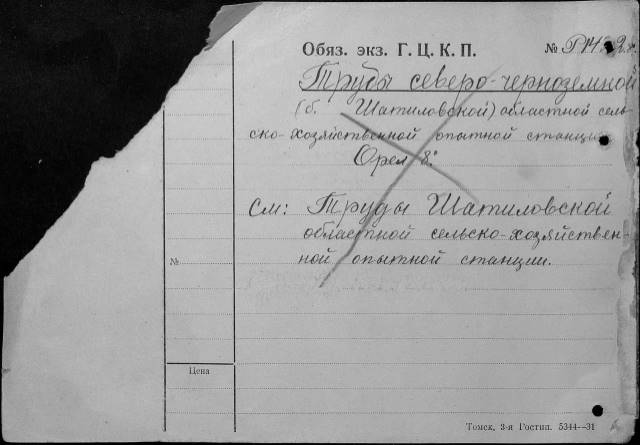 Обяз. экз. Г. Ц. К. П. №
Труды северо-черноземной
(б. Шатиловской) областной сель-
ско-хозяйственной опытной станции
Орел 8°
См: Труды Шатиловской
областной сельско-хозяйствен-
ной опытной станции.
№
Цена
Томск, 3-я Гостип. 5344—31